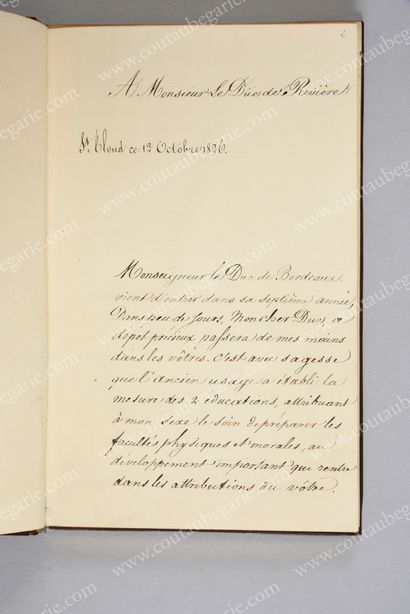 2
A Monsieur Le Duc de Rivière
St Cloud ce 12 Octobre 1826.
Monseigneur le Duc de Bordeaux
vient d'entrer dans sa septième année,
Dans peu de jours, Mon cher Duc, ce
depot precieux passera de mes mains
dans les vôtres. C'est avec sagesse
que l'ancien usage a établi la
mesure des 2 educations, attribuant
à mon sexe le soin de préparer les
facultés physiques et morales, au
développement important qui rentre
dans les attributions du vôtre.
www.coutaubegarie.com